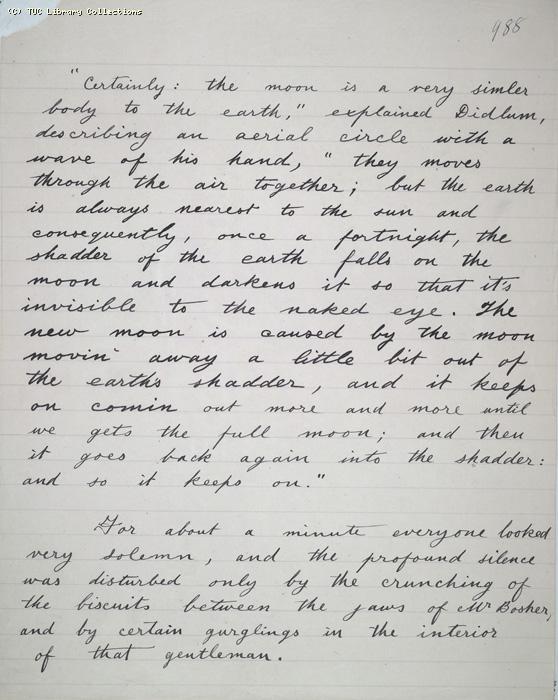 (C) TUC Library Collections
988
"Certainly: the moon is a very simler
body to the earth," explained Didlum,
describing an aerial circle with a
wave of his hand, "they moves
through the air together; but the earth
is always nearest to the sun and
consequently, once a fortnight, the
shadder of the earth falls on the
moon and darkens it so that it's
invisible to the naked eye. The
new moon is caused by the moon
movin' away a little bit out of
the earth's shadder, and it keeps
on comin out more and more until
we gets the full moon; and then
it goes back again into the shadder:
and so it keeps on."
For about a minute everyone looked
very solemn, and the profound silence
was disturbed only by the crunching of
the biscuits between the jaws of Mr Bosher,
and by certain gurglings in the interior
of that gentleman.